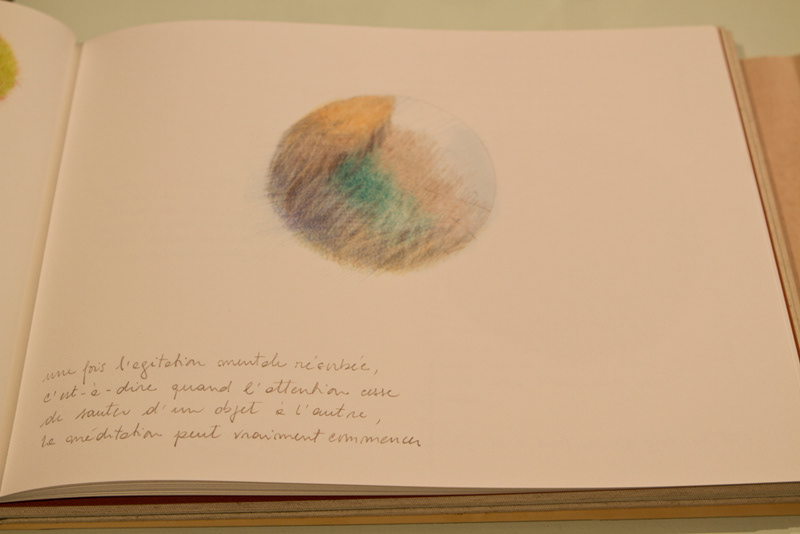 une fois l'agitation mentale résorbée,
c'est-à-dire quand l'attention cesse
de sauter d'un objet à l'autre,
la méditation peut vraiment commencer